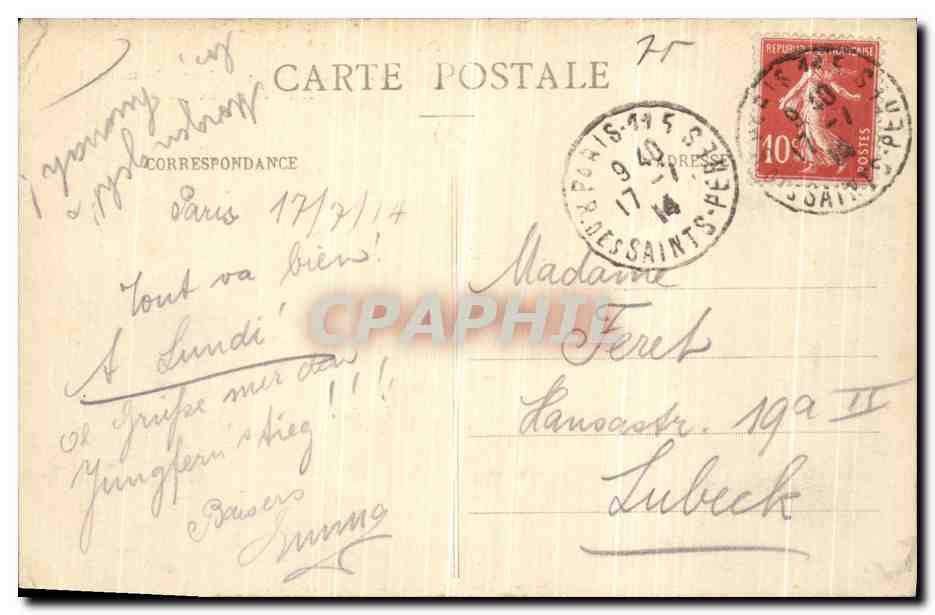 75
CARTE POSTALE
REPUBLIQUE FRANÇAISE
10c
POSTES
PARIS-115
R. DES SAINTS-PERES
9 40
17 - 7
14
CORRESPONDANCE
ADRESSE
Paris 17/7/14
Tout va bien!
A Lundi!
Grüße mir den
Jungfern stieg!!!
Baisers
Madame
Feret
Hansastr. 19a II
Lubeck
CPAPHIL